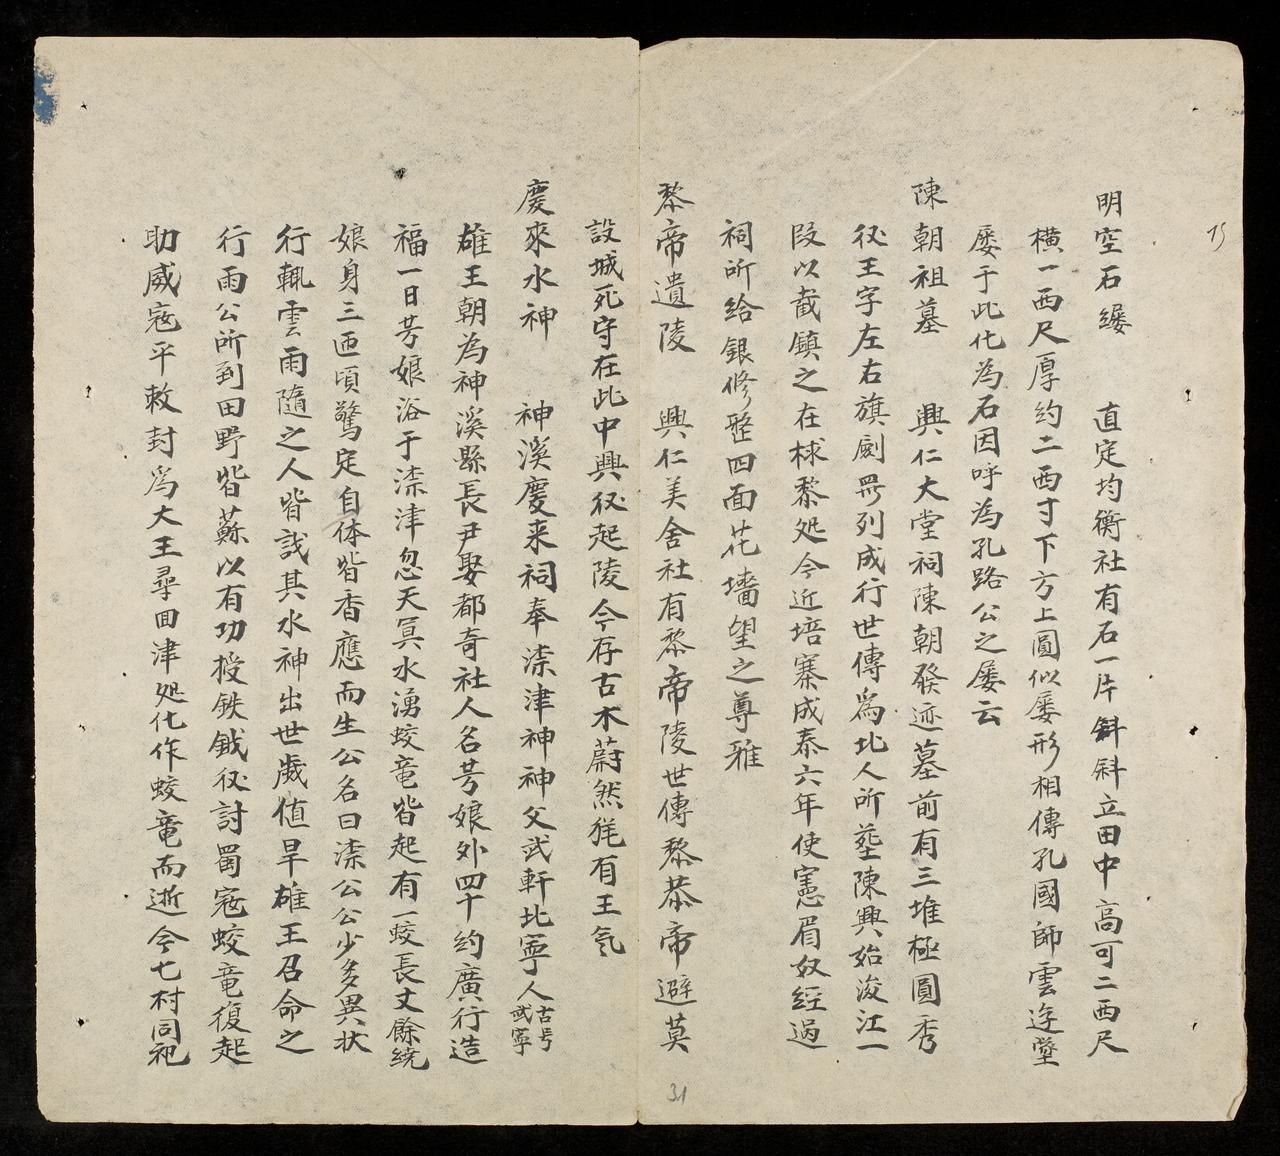 15
明空石屨　直定均衡社有石一片斜斜立田中高可二西尺
橫一西尺厚約二西寸下方上圓似屨形相傳孔國師雲遊墮
屨于此化為石因呼為孔路公之屨云
陳朝祖墓　興仁大堂祠陳朝發迹墓前有三堆極圓秀
後王字左右旗劍羅列成行世傳爲北人所塟陳興始浚江一
段以截鎮之在梂黎処今近培寨成泰六年使憲眉奴經過
祠所給銀修整四面花墻望之尊雅
黎帝遺陵　興仁美舍社有黎帝陵世傳黎恭帝避莫
設城死守在此中興後起陵今存古木蔚然猶有王氣
慶來水神　神溪慶来祠奉漆津神神父武軒北寧人古号武寧
雄王朝為神溪縣長尹娶都奇社人名芳娘外四十約廣行造
福一日芳娘浴于漆津忽天冥水湧蛟竜皆起有一蛟長丈餘繞
娘身三匝頃驚定自体皆香應而生公名曰漆公公少多異状
行輒雲雨隨之人皆訝其水神出世歲值旱雄王召命之
行雨公所到田野皆蘇以有功授鉄鉞後討蜀寇蛟竜復起
助威寇平敕封爲大王尋回津処化作蛟竜而逝今七村同祀
31